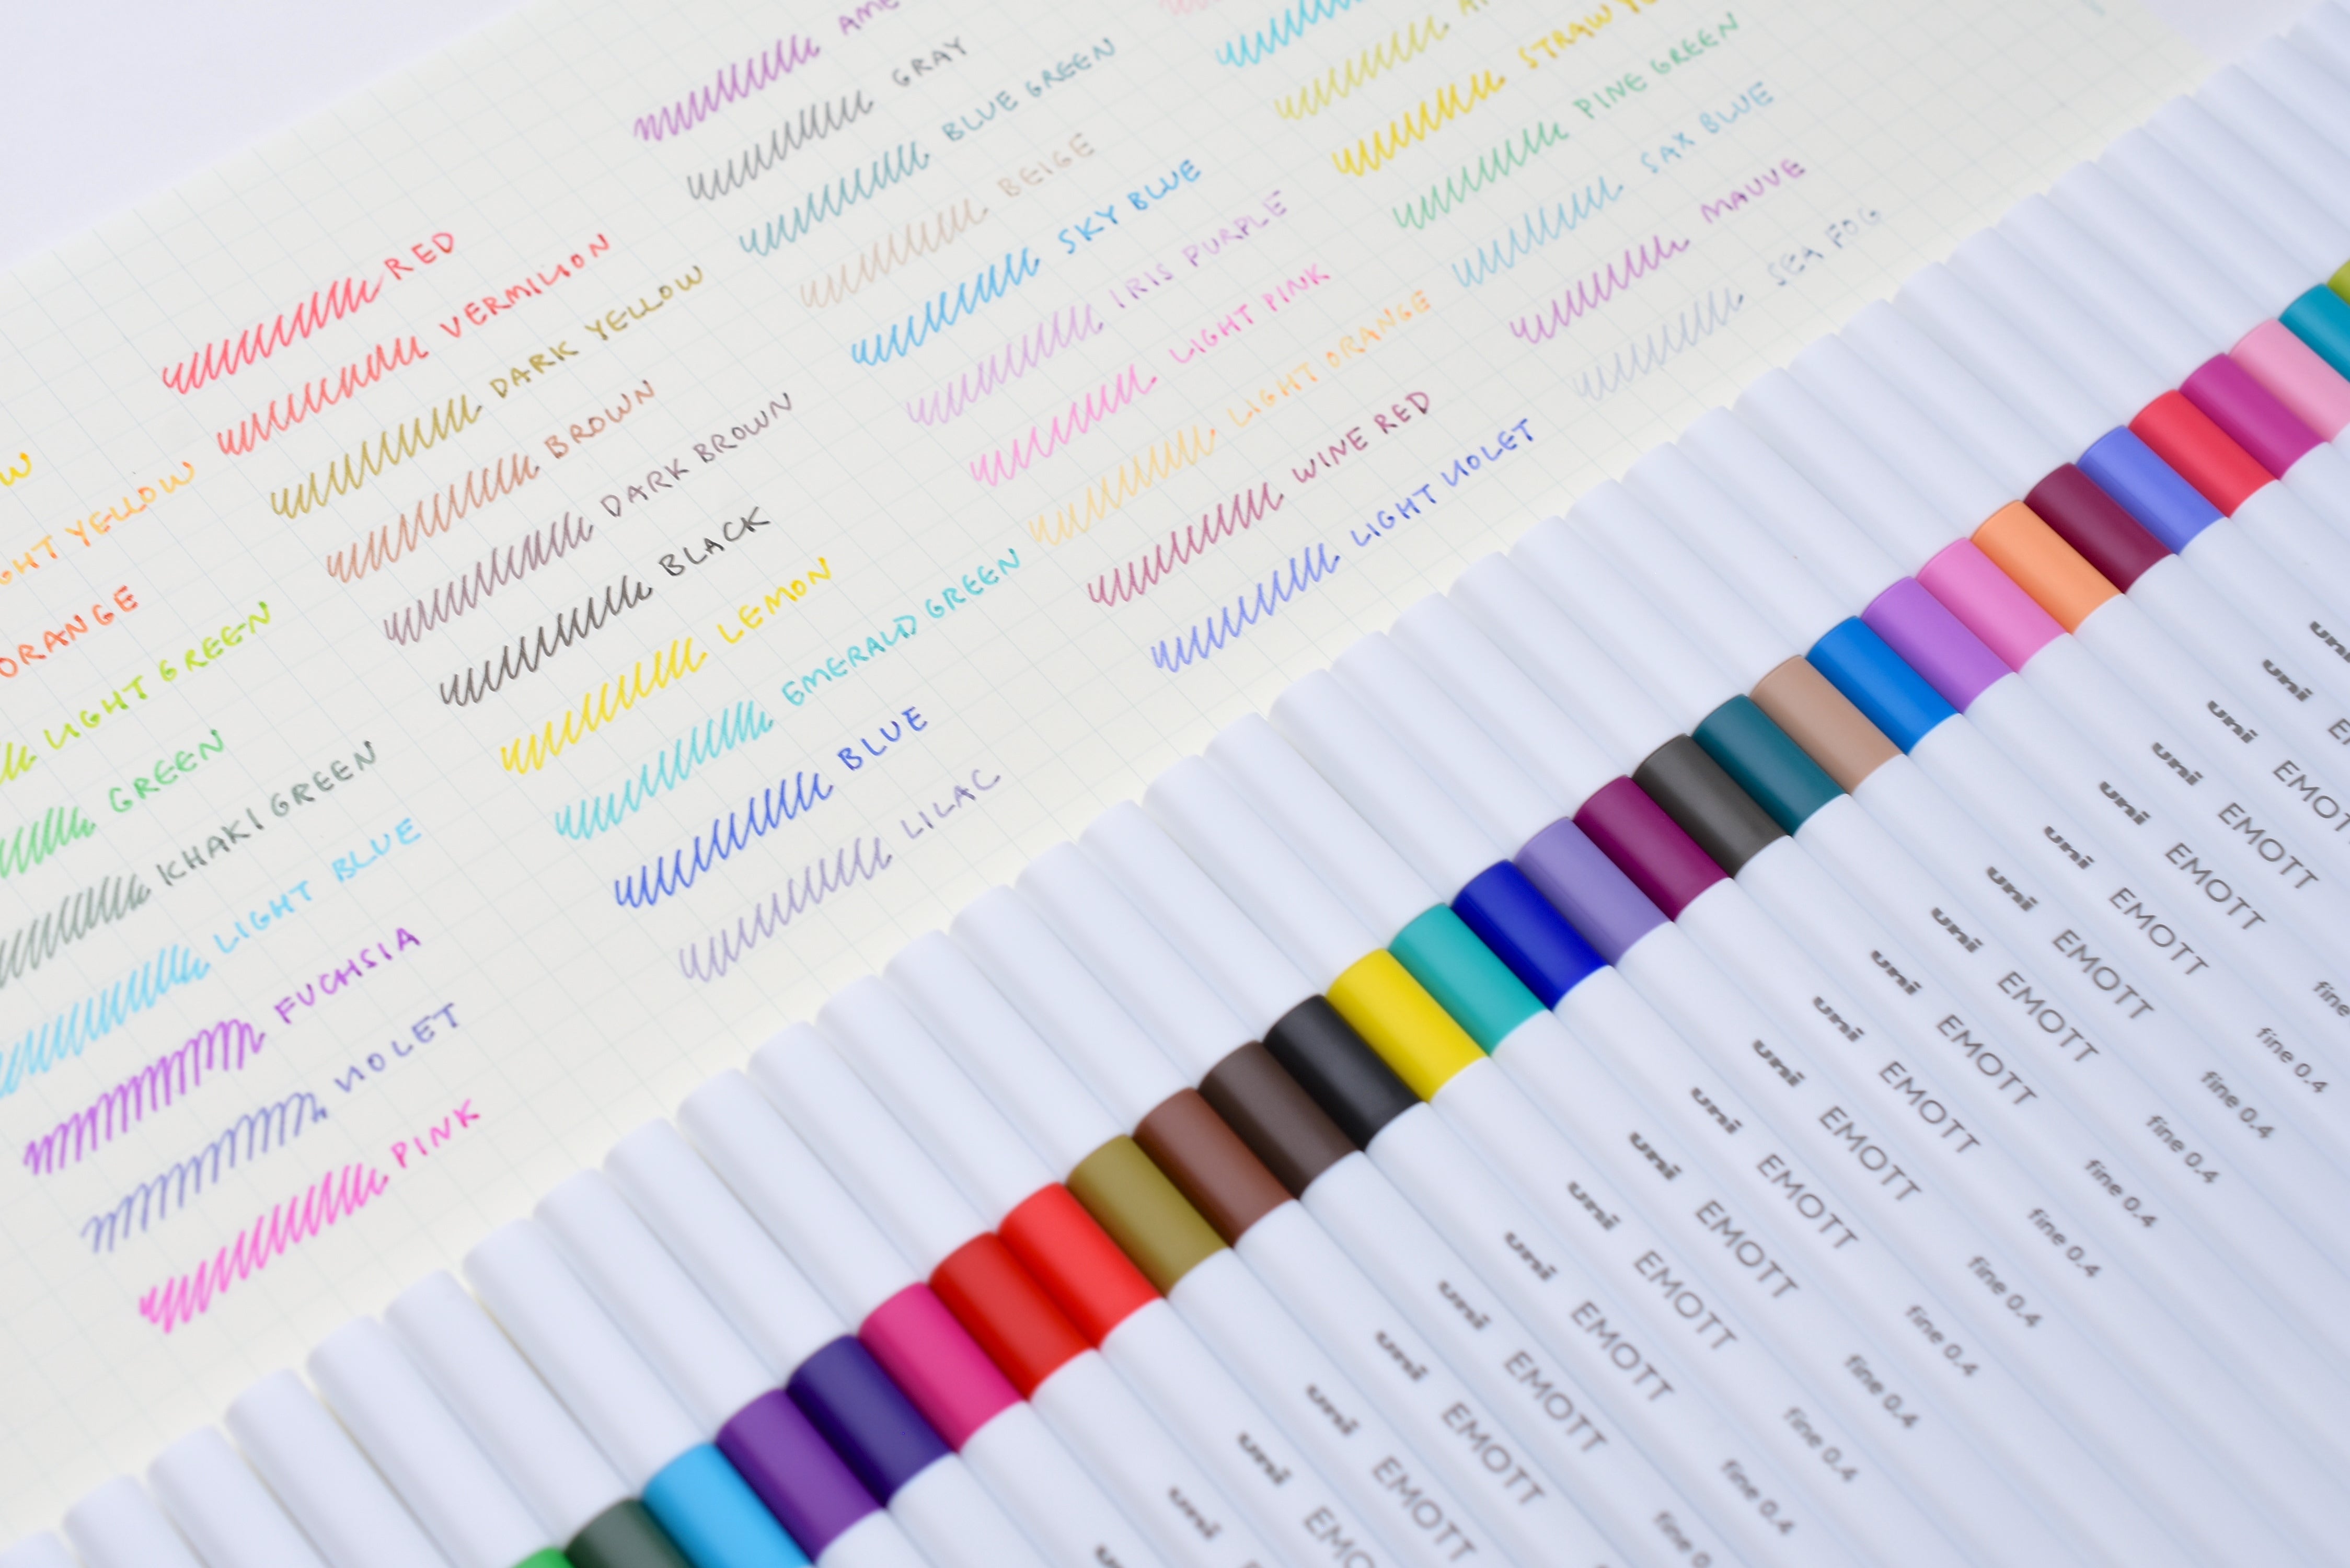 RED
VERMILION
DARK YELLOW
BROWN
DARK BROWN
BLACK
LEMON
EMERALD GREEN
BLUE
LILAC
YELLOW
ORANGE
LIGHT GREEN
GREEN
KHAKI GREEN
LIGHT BLUE
FUCHSIA
VIOLET
PINK
GRAY
BLUE GREEN
BEIGE
SKY BLUE
IRIS PURPLE
LIGHT PINK
LIGHT ORANGE
WINE RED
LIGHT VIOLET
STRAW
PINE GREEN
SAX BLUE
MAUVE
SEA FOG
uni
uni EMOTT
uni EMOTT
uni EMOTT fine 0.4
uni EMOTT fine 0.4
uni EMOTT fine 0.4
uni EMOTT fine 0.4
uni EMOTT fine 0.4
uni EMOTT fine 0.4
uni EMOTT fine 0.4
uni EMOTT fine 0.4
uni EMOTT fine 0.4
uni EMOTT fine 0.4
uni EMOTT fine 0.4
uni EMOTT fine
uni EMOTT
uni EMOTT
uni
uni